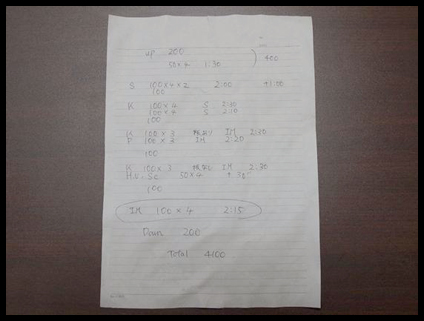 up 200
50×4 1:30 ) 400
S 100×4×2 2:00 +1:00
100
K 100×4 S 2:10
100×4 S 2:10
100
K 100×3 IM 2:20
P 100×3 IM 2:20
100
K 100×3 IM 2:30
50×4
100
IM 100×4 2:15
Down 200
Total 4100